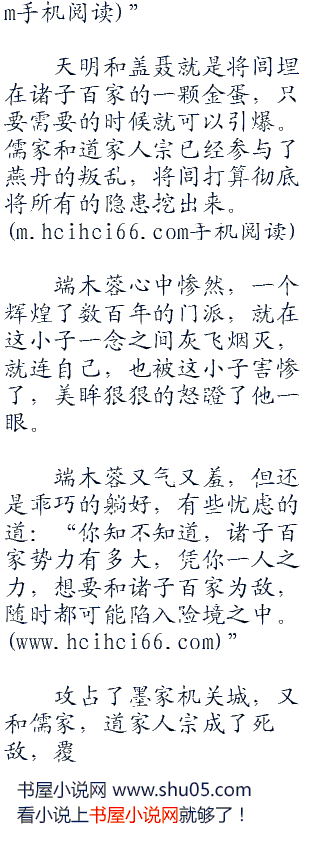 m手机阅读)”
天明和盖聂就是将闾埋
在诸子百家的一颗金蛋，只
要需要的时候就可以引爆。
儒家和道家人宗已经参与了
燕丹的叛乱，将闾打算彻底
将所有的隐患挖出来。
(m.hcihci66.com手机阅读)
端木蓉心中惨然，一个
辉煌了数百年的门派，就在
这小子一念之间灰飞烟灭，
就连自己，也被这小子害惨
了，美眸狠狠的怒蹬了他一
眼。
端木蓉又气又羞，但还
是乖巧的躺好，有些忧虑的
道：“你知不知道，诸子百
家势力有多大，凭你一人之
力，想要和诸子百家为敌，
随时都可能陷入险境之中。
(www.hcihci66.com)”
攻占了墨家机关城，又
和儒家，道家人宗成了死
敌，覆
书屋小说网 www.shu05.com
看小说上书屋小说网就够了！